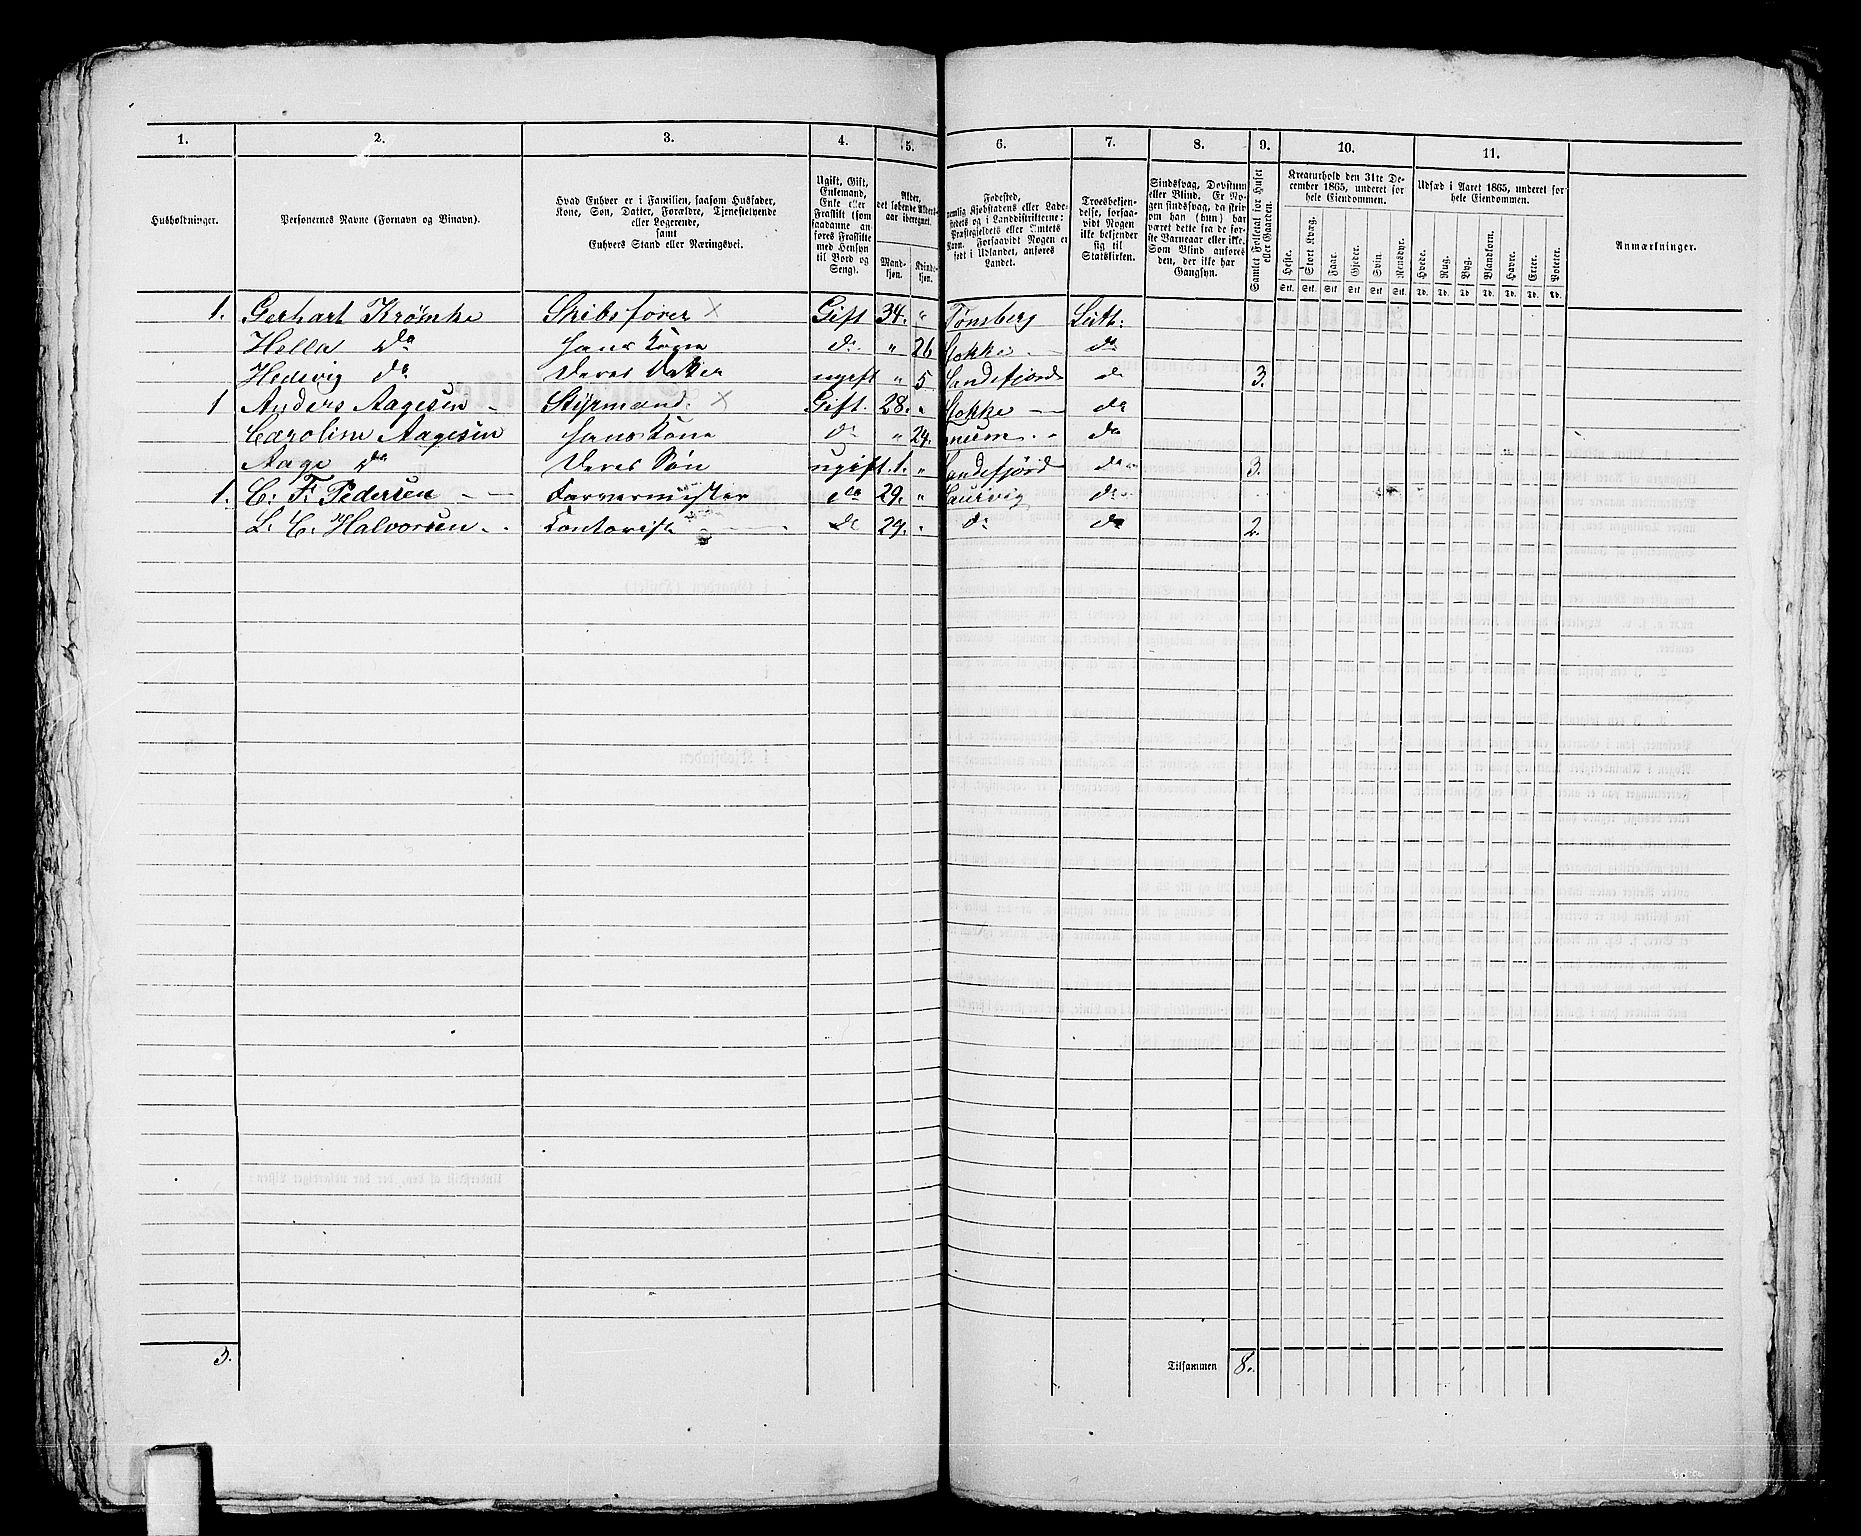 1. 2. 3. 4. 5. 6. 7. 8. 9. 10. 11.
Husholdninger.
Personernes Navne (Fornavn og Binavn).
Hvad Enhver er i Familien, saasom Husfader,
Kone, Søn, Datter, Forældre, Tjenestetyende
eller Logerende,
samt
Enhvers Stand eller Næringsvei.
Ugift, Gift,
Enkemand,
Enke eller
Fraskilt (som
saadanne an-
føres Fraskilte
med Hensyn
til Bord og
Seng).
Alder,
det løbende Alders-
aar iberegnet.
Mand-
kjøn.
Kvinde-
kjøn.
Fødested,
nemlig Kjøbstadens eller Lade-
stedets og i Landdistrikterne:
Præstegjeldets eller Amtets
Navn. Forsaavidt Nogen er
født i Udlandet, anføres
Landet.
Troesbekjen-
delse, forsaa-
vidt Nogen
ikke bekjender
sig til
Statskirken.
Sindssvag, Døvstum
eller Blind. Er No-
gen sindssvag, da skriv
om han (hun) har
været dette fra de før-
ste Barneaar eller ikke.
Som Blind anføres
den, der ikke har
Gangsyn.
Samlet Folketal for Huset
eller Gaarden.
Kreaturhold den 31te De-
cember 1865, underet for
hele Eiendommen.
Heste. Stort Kvæg. Faar. Gjeder. Svin. Rensdyr.
Stk. Stk. Stk. Stk. Stk. Stk.
Udsæd i Aaret 1865, underet for
hele Eiendommen.
Hvede. Rug. Byg. Blandkorn. Havre. Erter. Poteter.
Td. Td. Td. Td. Td. Td. Td.
Anmærkninger.
1. Gerhart Krømke Skibsfører × Gift 34. " Tønsberg Luth:
Hella do Hans Kone do. " 26 Stokke do
Hedevig do Deres Datter ugift " 5 Sandefjord do 3.
1 Anders Aagesen Styrmand. × Gift. 28. " Stokke do
Caroline Aagesen Hans Kone do " 24. do
Aage do Deres Søn ugift. 1. " Sandefjord do 3.
1. C. F. Pedersen Farvermester do 29. " Laurvig do
L. C. Halvorsen Kontorist do 29. " do do 2.
3. Tilsammen 8.